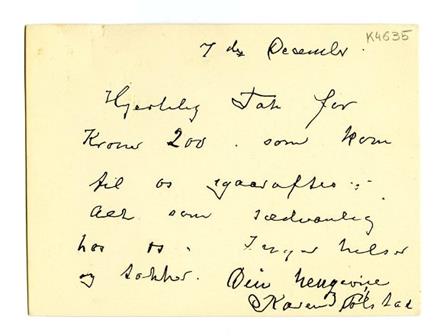 K4635
7 de December.
Hjertelig Tak for
Kroner 200. som kom
til os igaaraftes :
Alt som sædvanlig
hos os. Inger hilser
og takker. Din hengivne
Karen Bolstad